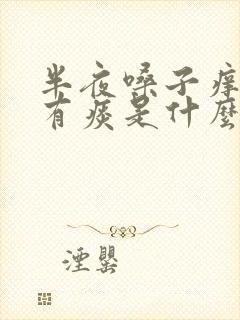 半夜嗓子痒
有痰是什麼
湮罌